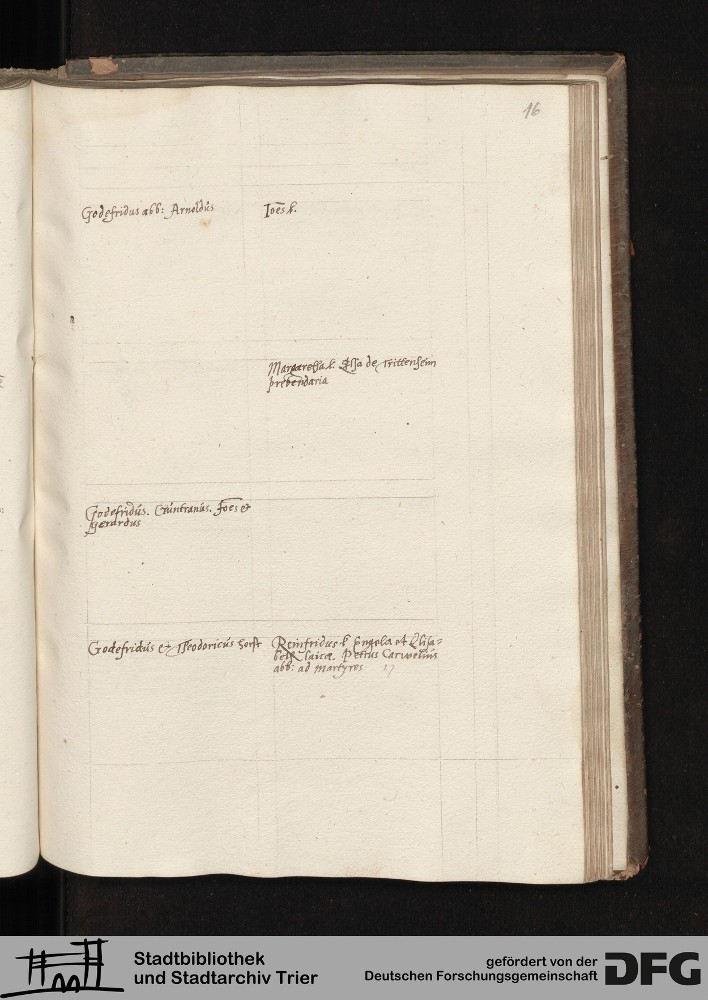 16
Godefridus abb: Arnoldus
Ioēs k.
Margaretha k. Elsa de Trittenheim
prebendaria
Godefridus. Guntranus. Joēs et
gerardus
Godefridus et Theodoricus horst
Reinfridus k et Elisa=
beth laicæ. Petrus
abb: ad martyres 17
Stadtbibliothek
und Stadtarchiv Trier
gefördert von der
Deutschen Forschungsgemeinschaft
DFG